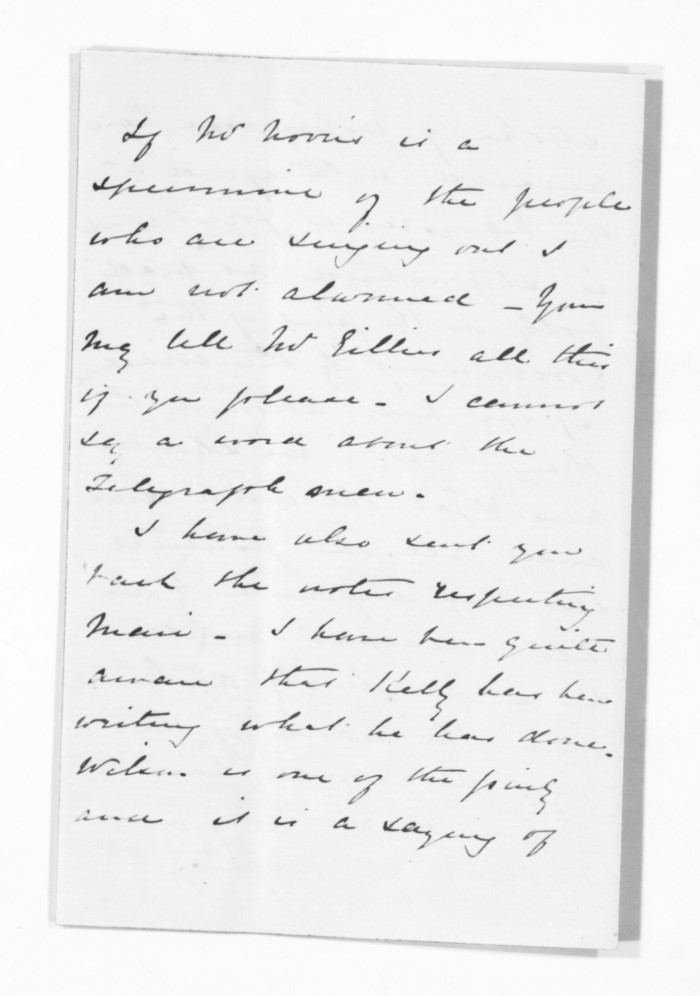 If Mr Norris is a
specimine of the people
who are singing out I
am not alarmed - You
may tell Mr Gillies all this
if you please - I cannot
say a word about the
Telegraph men.
I have also sent you
back the notes respecting
Mair - I have been quite
aware that Kelly has been
writing what he has done.
Wilson is one of the
and it is a saying of